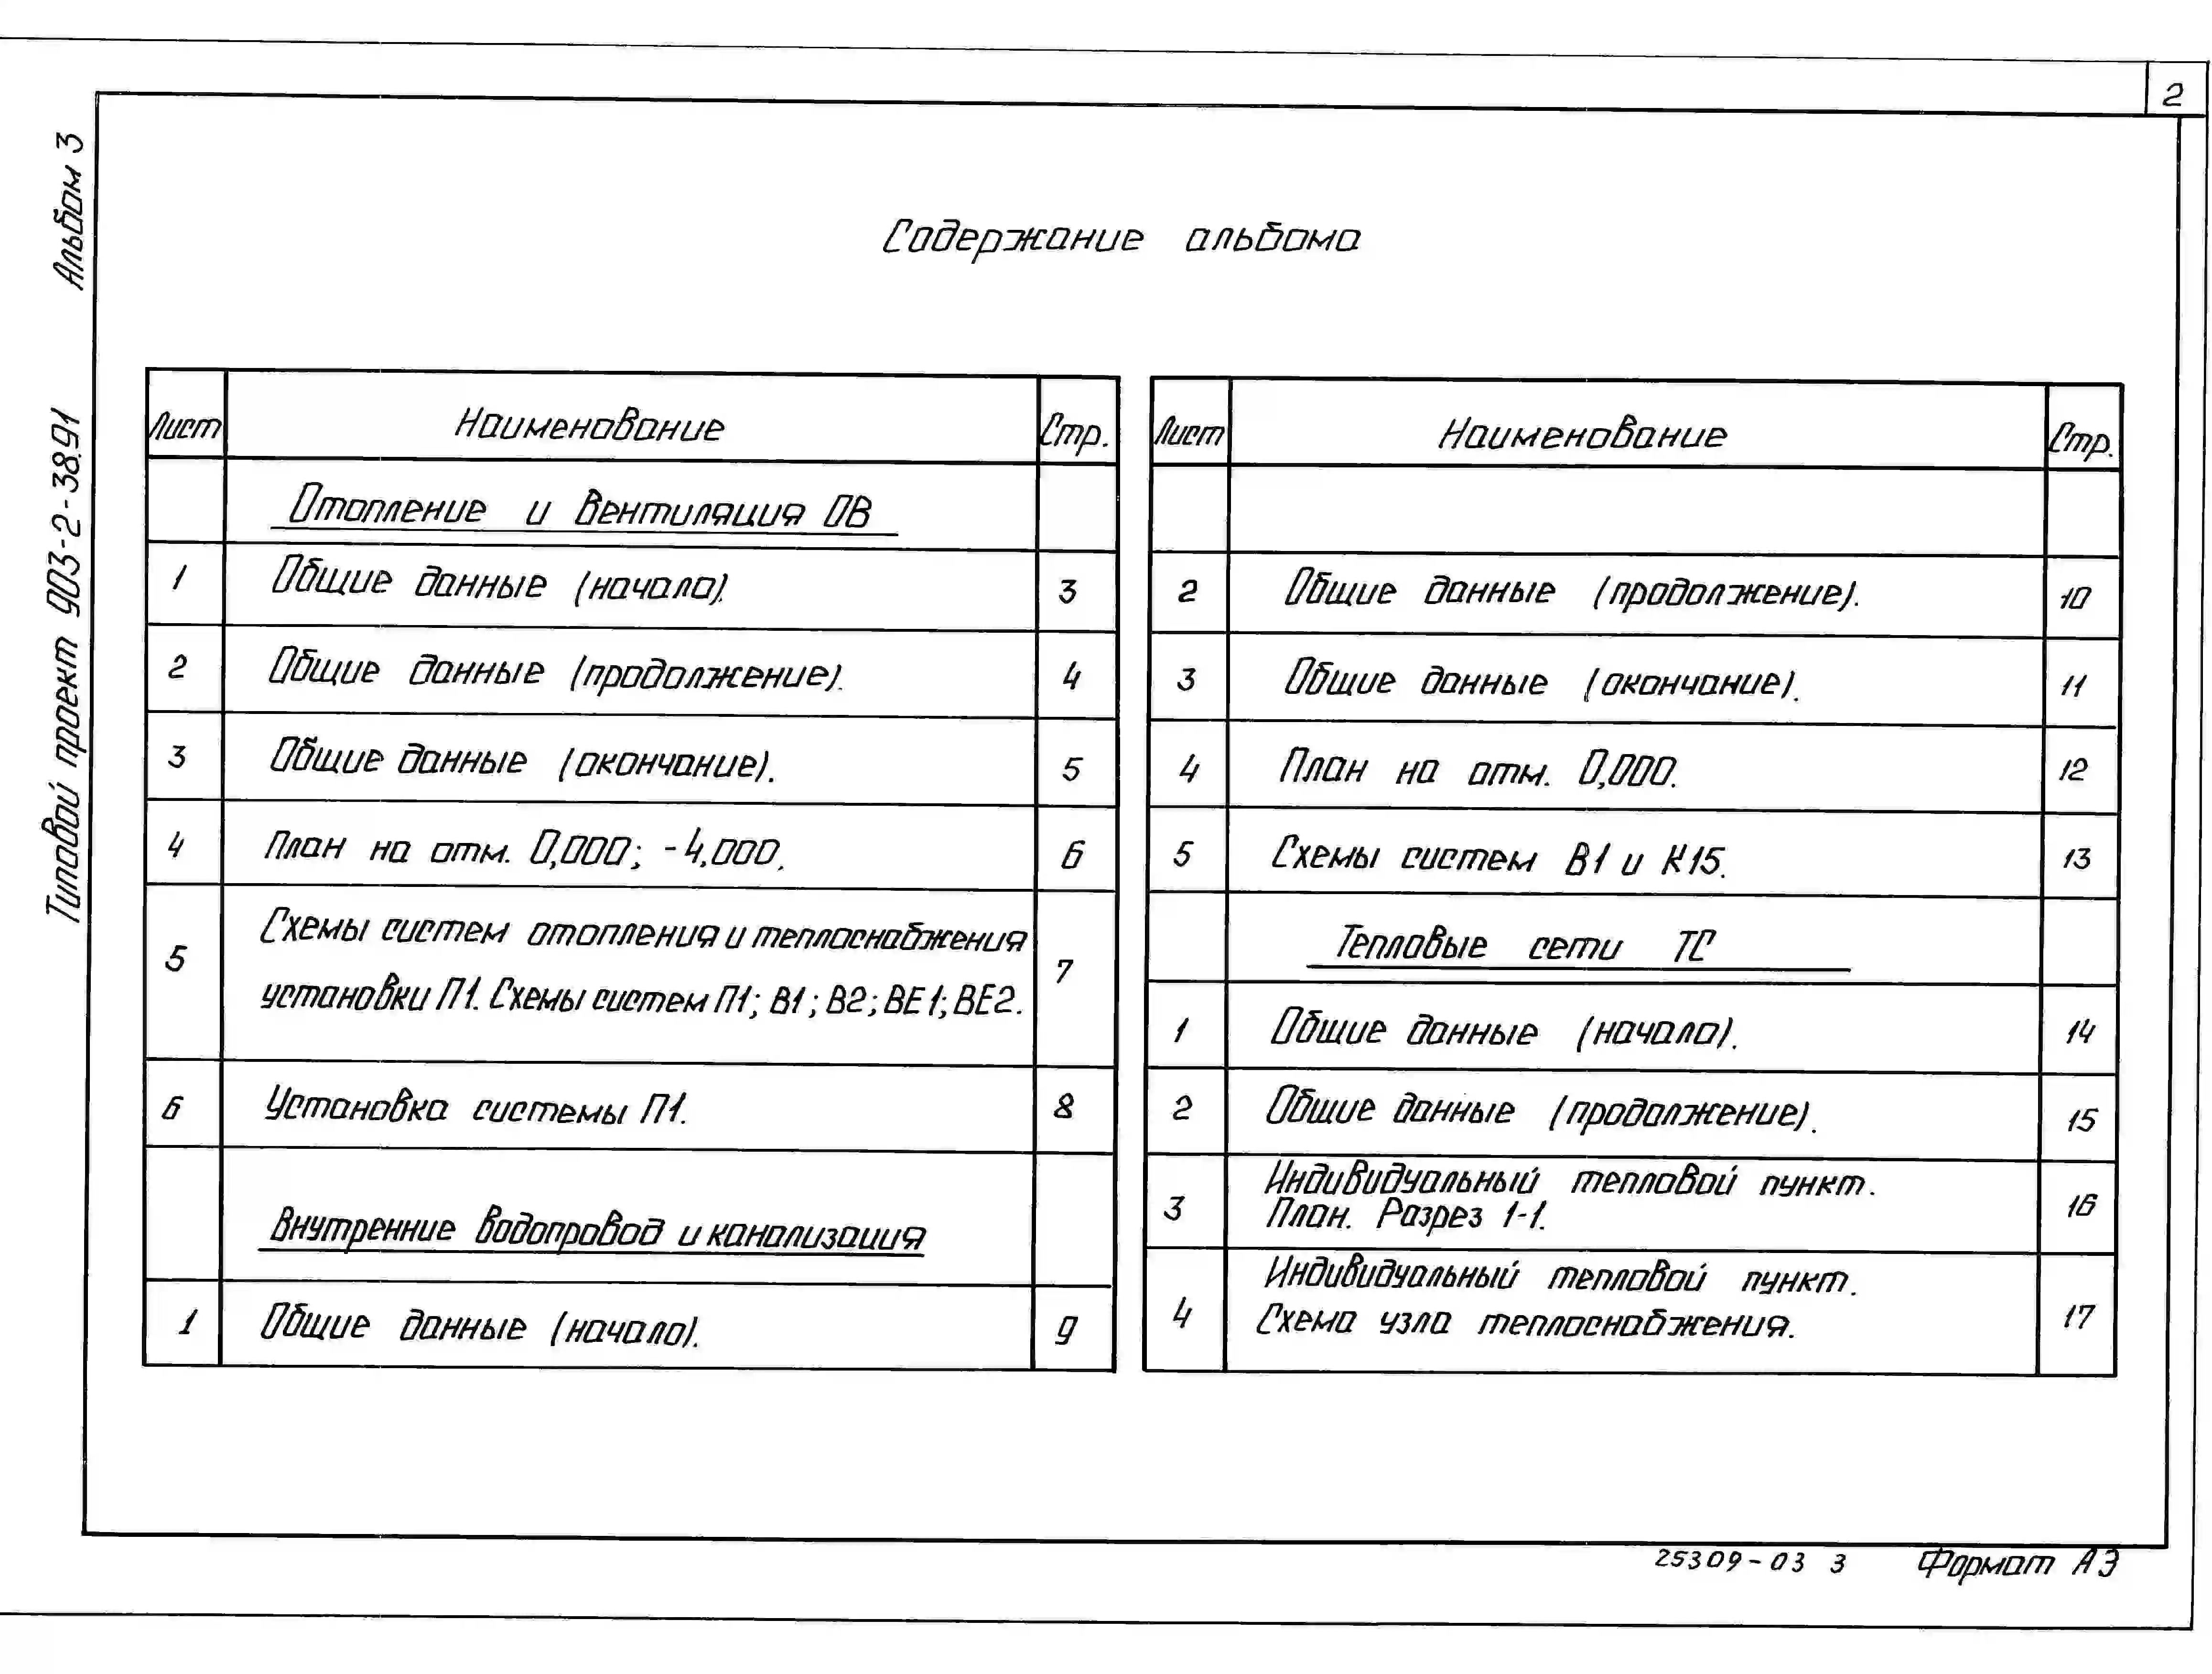 2
Альбом 3
Типовой проект 903-2-38.91
Содержание альбома
Лист Наименование Стр.
Отопление и вентиляция ОВ
1 Общие данные (начало). 3
2 Общие данные (продолжение). 4
3 Общие данные (окончание). 5
4 План на отм. 0,000; -4,000. 6
5 Схемы систем отопления и теплоснабжения 7
установки П1. Схемы систем П1; В1; В2; ВЕ1; ВЕ2.
6 Установка системы П1. 8
Внутренние водопровод и канализация
1 Общие данные (начало). 9
Лист Наименование Стр.
2 Общие данные (продолжение). 10
3 Общие данные (окончание). 11
4 План на отм. 0,000. 12
5 Схемы систем В1 и К15. 13
Тепловые сети ТС
1 Общие данные (начало). 14
2 Общие данные (продолжение). 15
3 Индивидуальный тепловой пункт. 16
План. Разрез 1-1.
4 Индивидуальный тепловой пункт. 17
Схема узла теплоснабжения.
25309-03 3 Формат А3